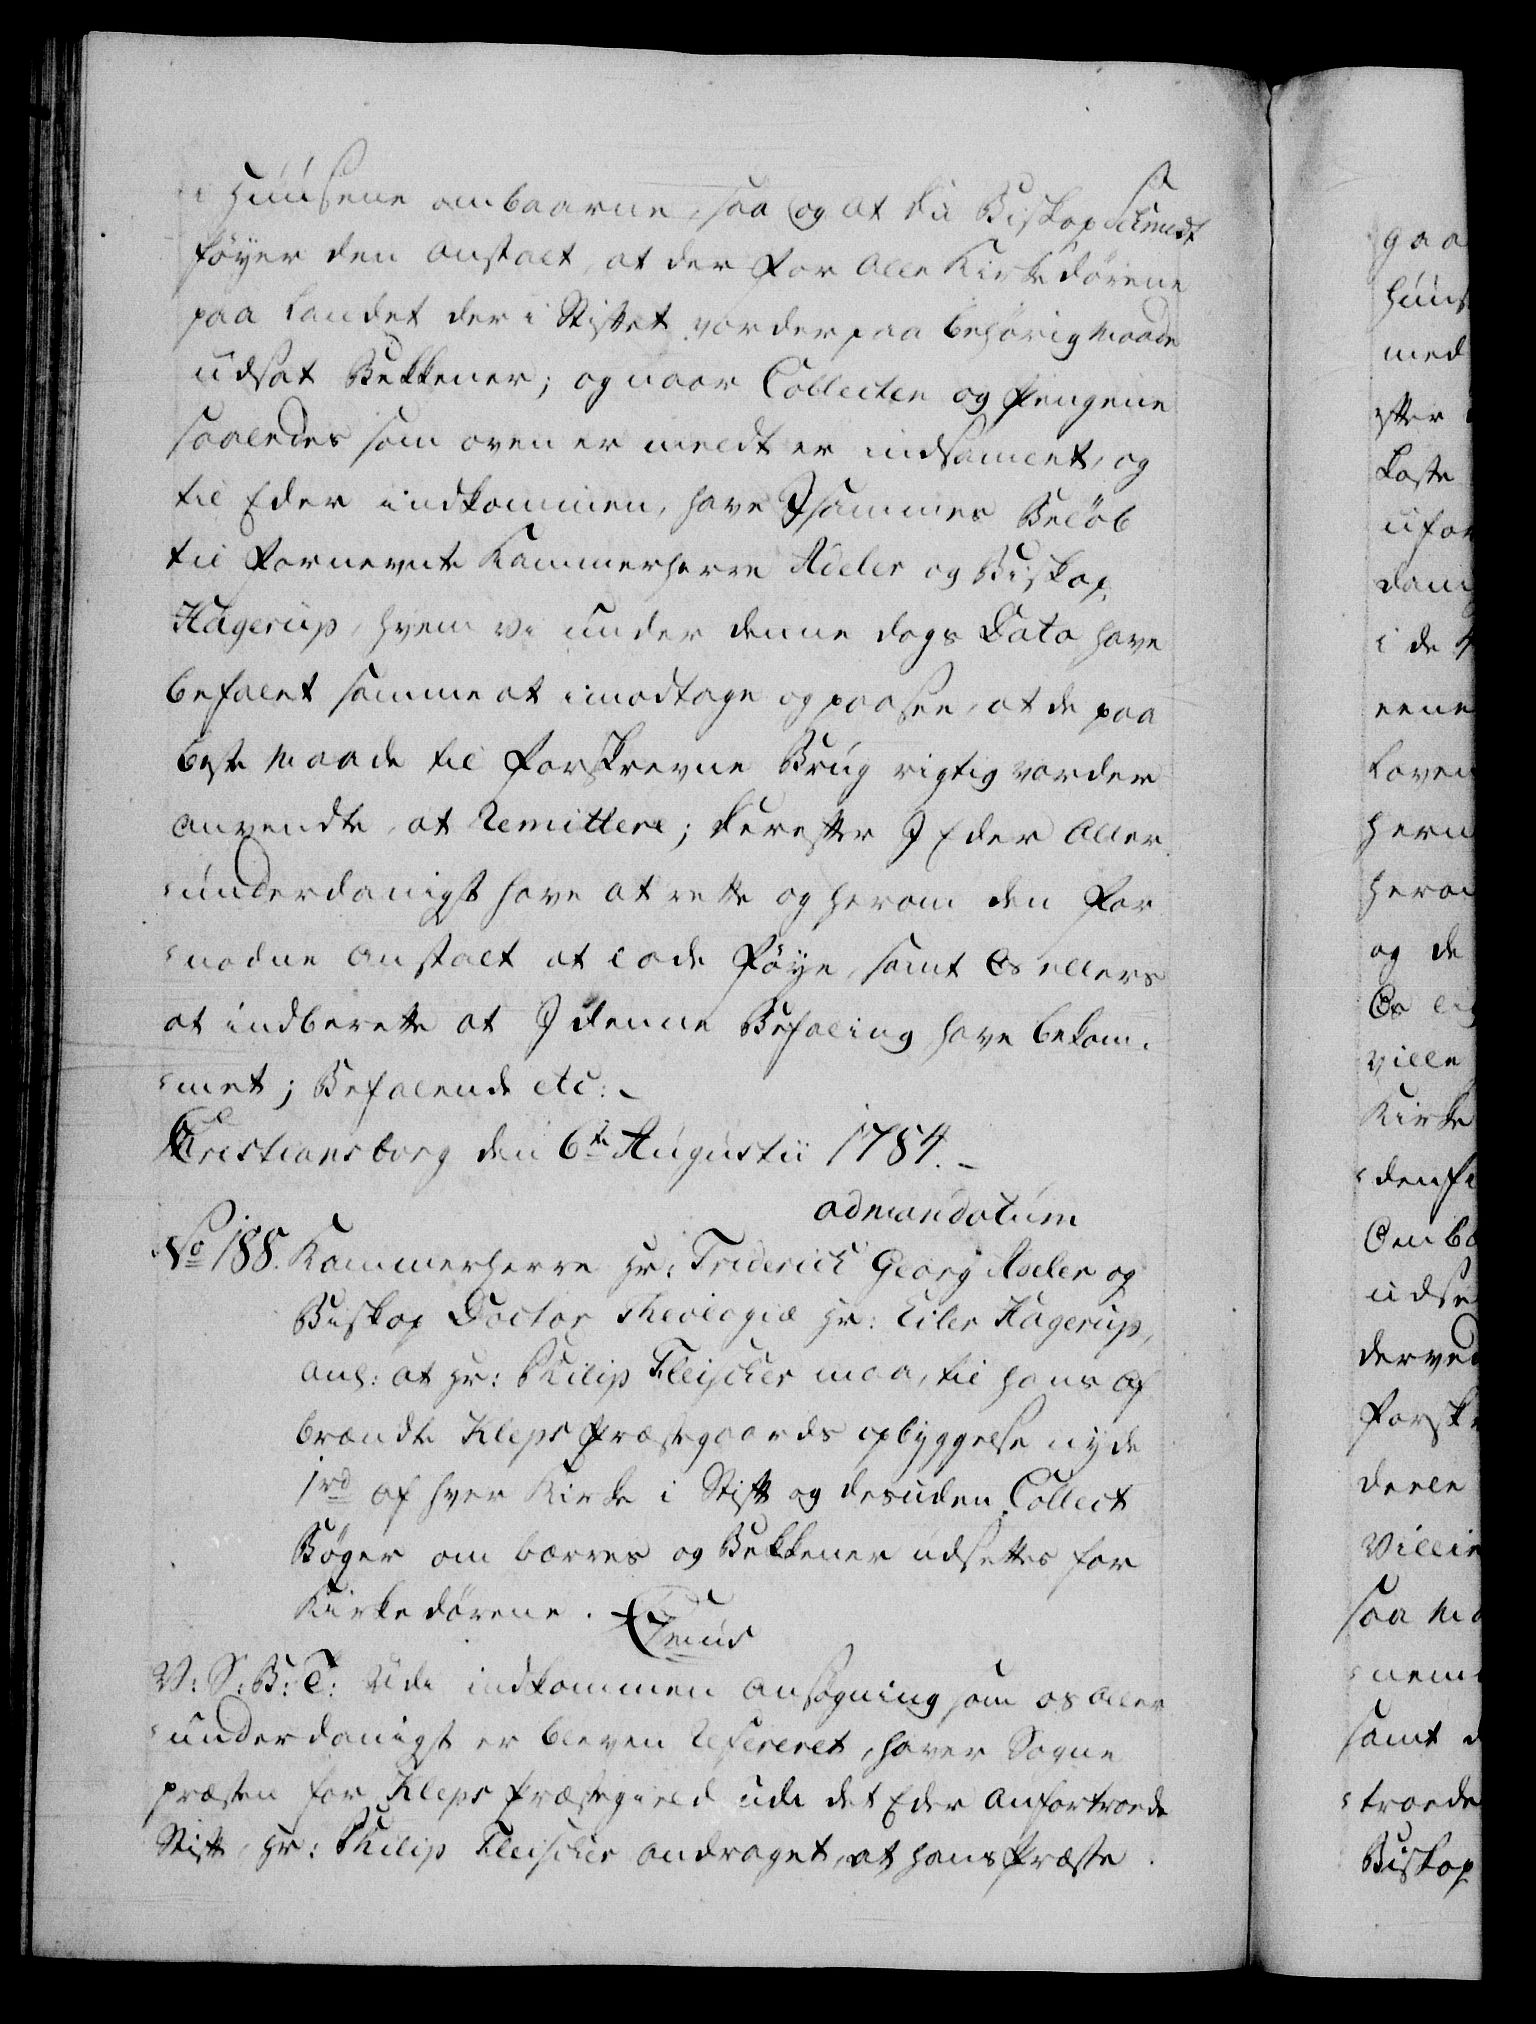 i Huusene ombaarne, saa og at du Biskop Schmidt
føyer den Anstalt, at der for Alle Kirke Dørene
paa Landet der i Stiftet vorder paa behørig Maade
udsat Bekkener; og naar Collecten og Pengene
saaledes som oven er meldt er indsamlet, og
til Eder indkommen, have I sammes Beløb
til Fornevnte Kammerherre Adeler og Biskop
Hagerup, hvem Vi under denne Dags Dato have
befalet samme at imodtage og paasee, at de paa
beste Maade til forskrevne Brug rigtig vorder
anvendte, at Remittere; Derefter I Eder Aller
underdanigst have at rette og herom den For
nødne Anstalt at lade Føye, samt Os ellers
at indberette at I denne Befaling have bekom-
met; Befalende etc:
Christiansborg den 6te Augustii 1784.
ad mandatum
No 188. Kammerherre Hr: Friderich Georg Adeler og
Biskop Doctor Theologiæ Hr: Eiler Hagerup,
anl: at Hr: Philip Fleischer maa, til hans af
brændte Kleps Præstegaards opbyggelse nyde
1rd af hver Kirke i Stift og desuden Collect
Bøger om bæres og Bekkener udsettes for
Kirkedørene.
V: S: B: T: Udi indkommen Ansøgning som os Aller
underdanigst er bleven Refereret, haver Sogne
præsten for Kleps Præstegield udi det Eder Anfortroede
Stift, Hr: Philip Fleischer andraget, at hans Præste
gaa
Huus
med
efter
Kaste
ufor
dan
i de
eene
Loven
hern
heror
og de
Os lig
ville
Kirke
denf
Om b
udse
derved
Forsk
deele
Villie
saa M
nem
samt
troede
Biskop